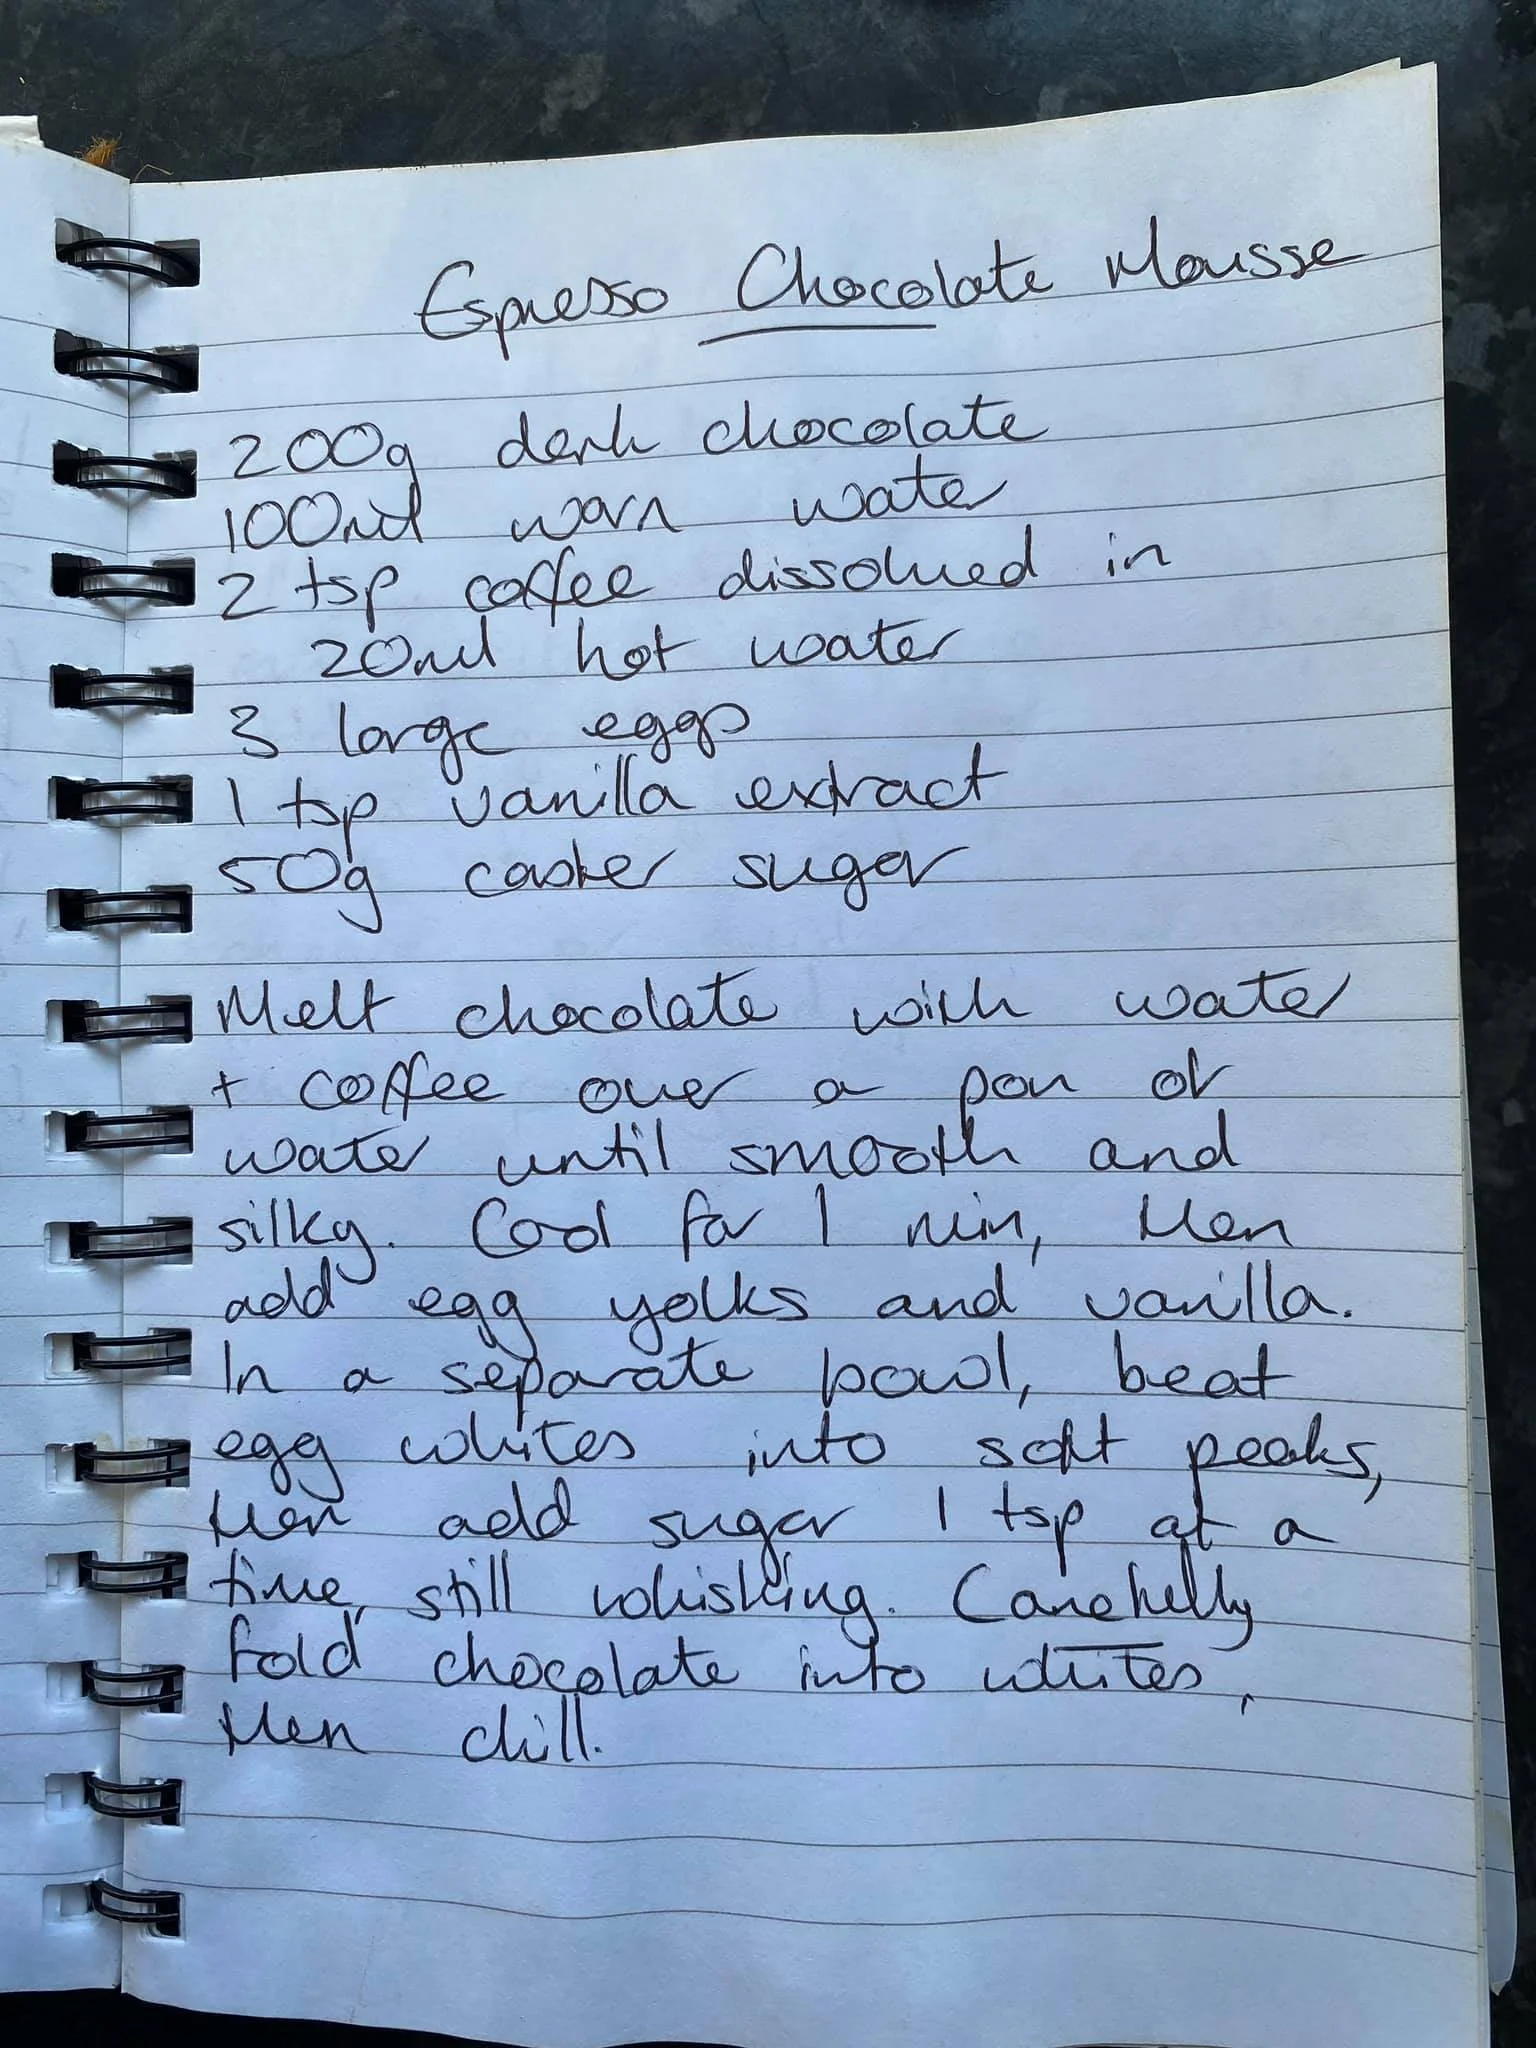 Espresso Chocolate Mousse
200g dark chocolate
100ml warm water
2 tsp coffee dissolved in
20ml hot water
3 large eggs
1 tsp vanilla extract
50g caster sugar
Melt chocolate with water
+ coffee over a pan of
water until smooth and
silky. Cool for 1 min, then
add egg yolks and vanilla.
In a separate bowl, beat
egg whites into soft peaks,
then add sugar 1 tsp at a
time, still whisking. Carefully
fold chocolate into whites,
then chill.